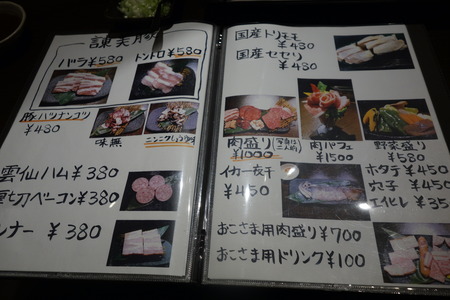 諫美豚
バラ ¥580 トントロ ¥580
豚ハツナンコツ
¥480
味黒
ニンニクしょうゆ
雲仙ハム ¥380
厚切ベーコン ¥380
ンナー ¥380
国産トリモモ
¥480
国産セセリ
¥480
肉盛り
¥1000
肉パフェ
¥1500
野菜盛り
¥580
イカ一夜干
¥450
ホタテ ¥450
穴子 ¥450
エイヒレ ¥35
おこさま用肉盛り ¥700
おこさま用ドリンク ¥100